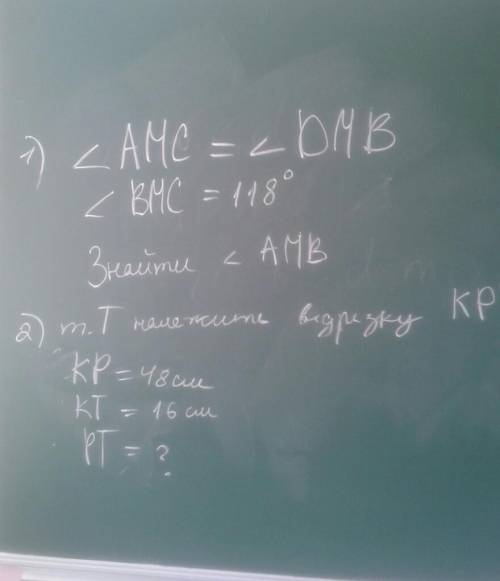 1) ∠ AMC = ∠ DMB
∠ BMC = 118°
Знайти ∠ AMB
2) т.Т належить відрізку KP
KP = 48 см
KT = 16 см
PT = ?